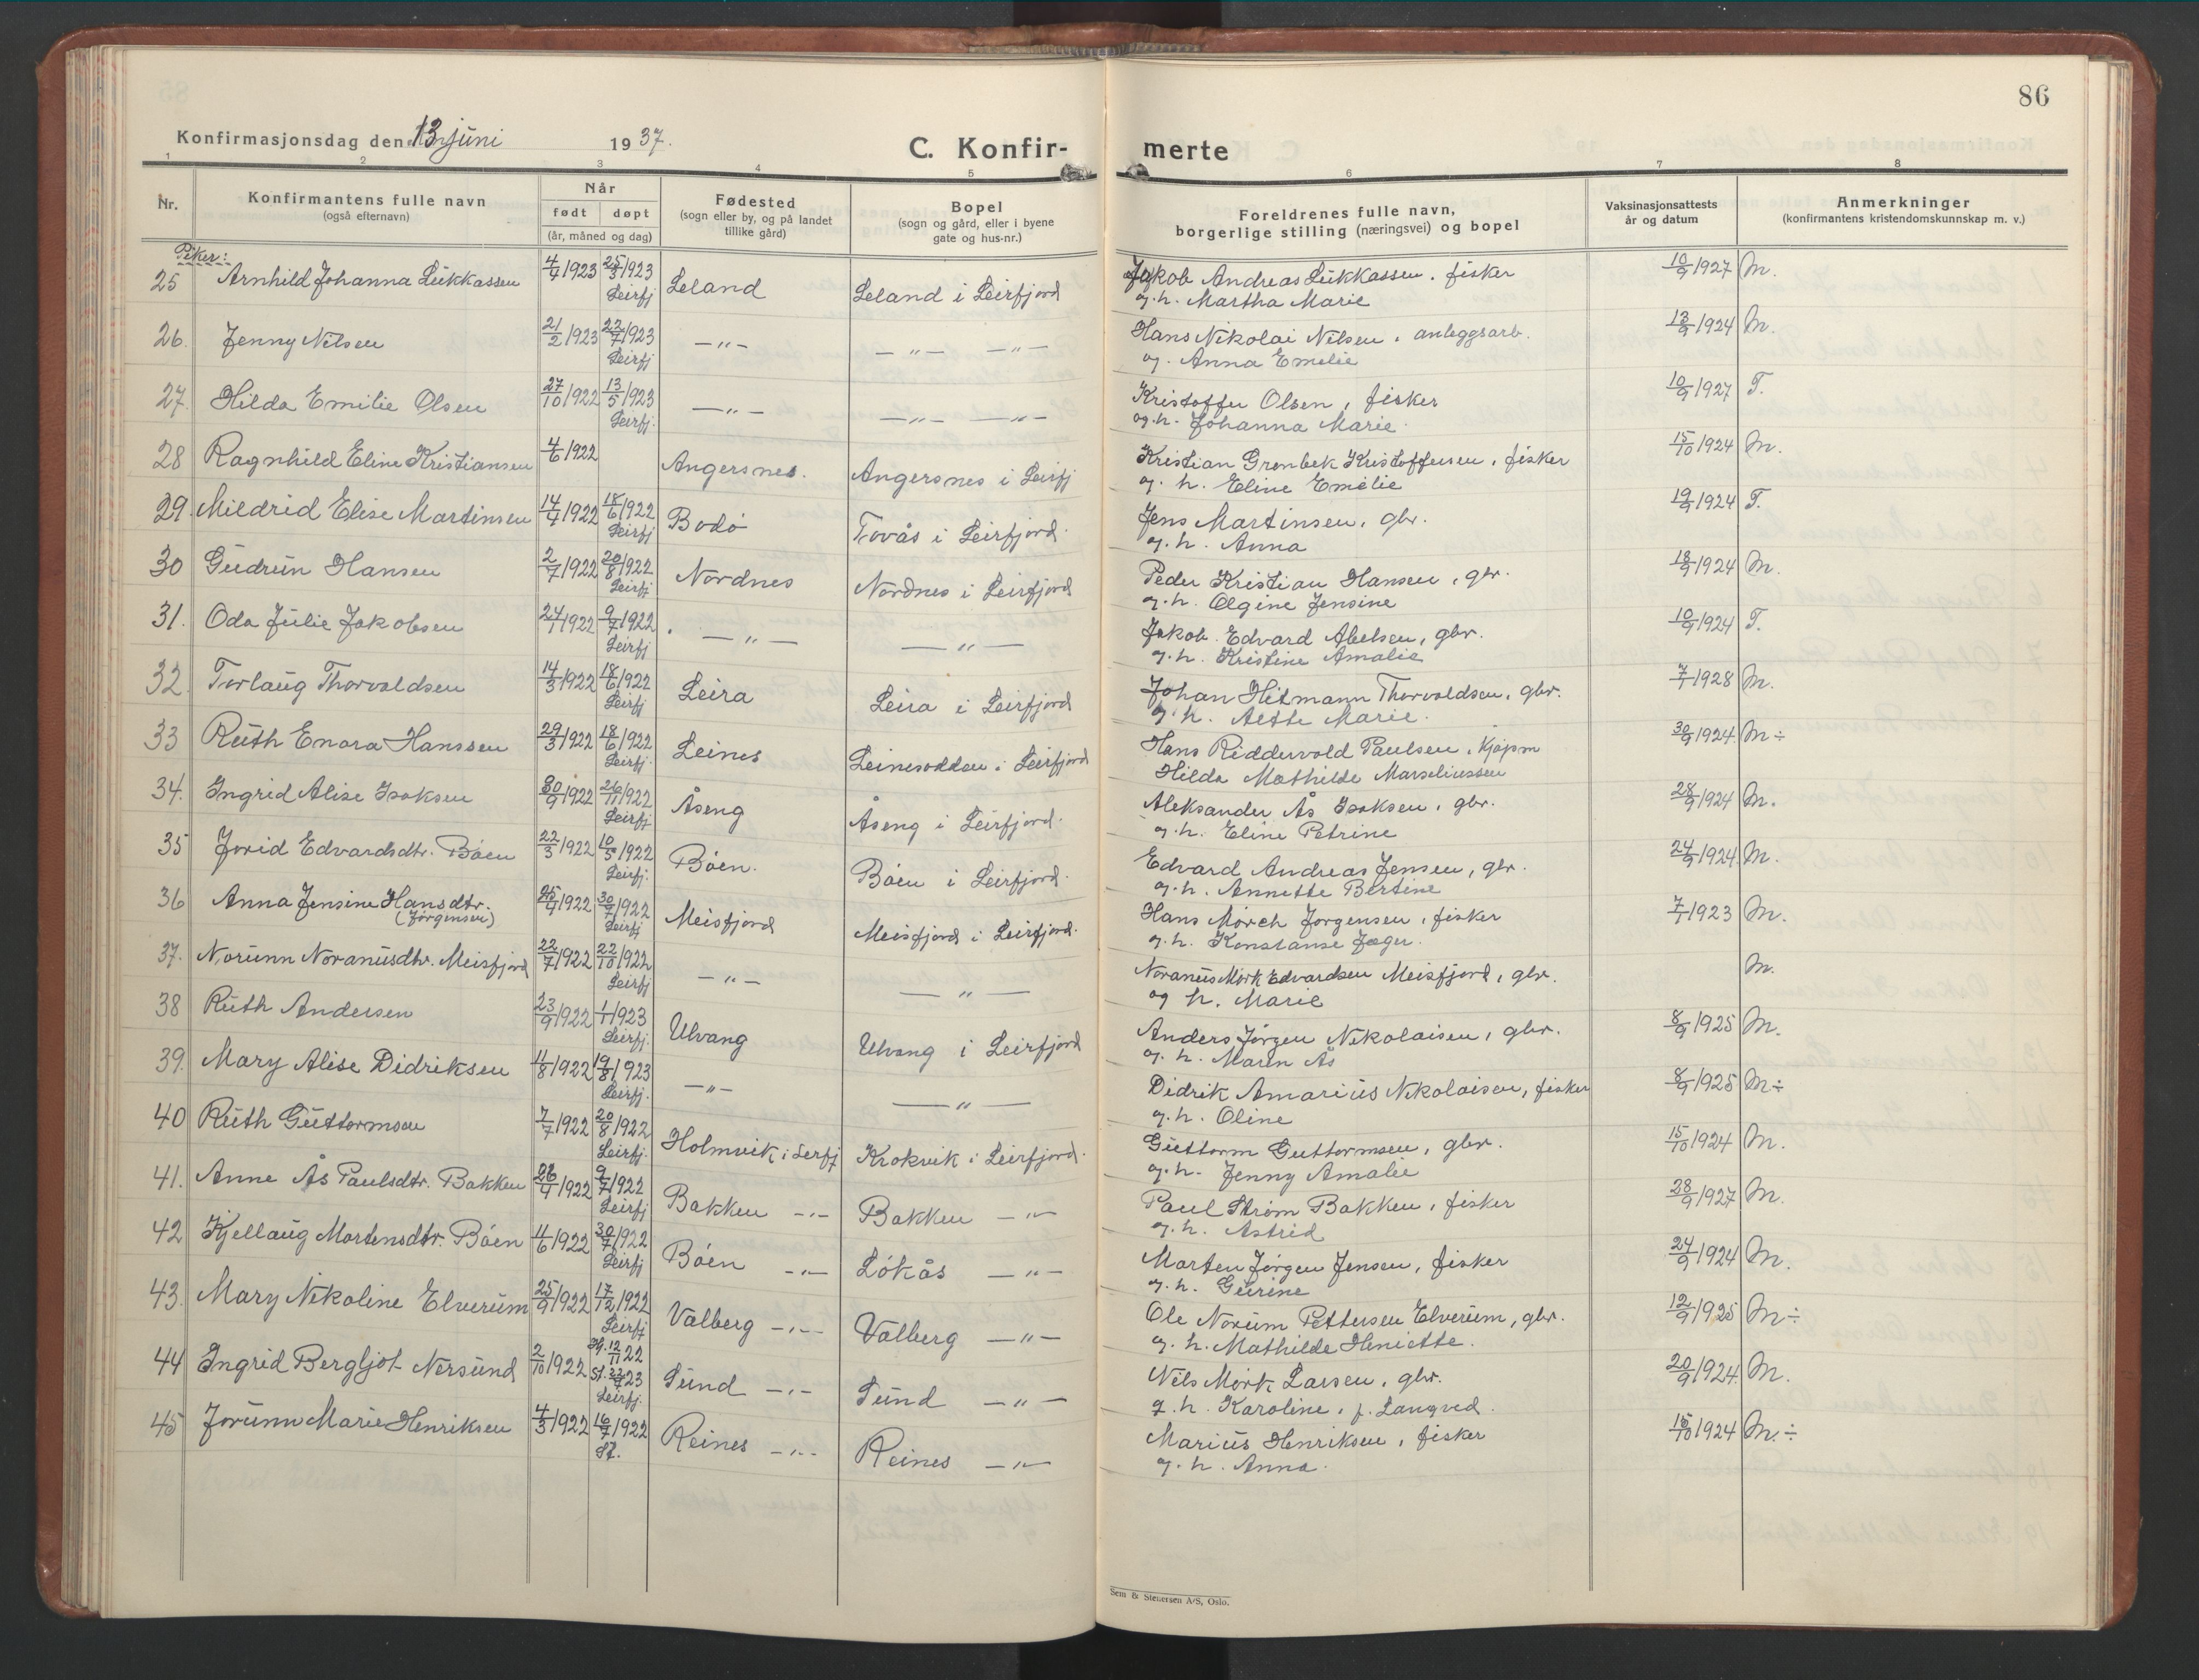 86
Konfirmasjonsdag den 13 juni 1937.
C. Konfir-
merte
1 2 3 4 5 6 7 8
Nr.
Konfirmantens fulle navn
(også efternavn)
Når
født døpt
(år, måned og dag)
Fødested
(sogn eller by, og på landet
tillike gård)
Bopel
(sogn og gård, eller i byene
gate og hus-nr.)
Foreldrenes fulle navn,
borgerlige stilling (næringsvei) og bopel
Vaksinasjonsattests
år og datum
Anmerkninger
(konfirmantens kristendomskunnskap m. v.)
Piker:
25 Arnhild Johanna Lükkassen 4/4 1923 25/3 1923 Leland Leland i Leirfjord Jakob Andreas Lükkassen, fisker 10/9 1927 M.
Leirfj og h. Martha Marie
26. Jenny Nilsen 21/2 1923 22/7 1923 —"— —"— —"— Hans Nikolai Nilsen, anleggsarb. 13/9 1924 M.
Leirfj og. Anna Emelie
27. Hilda Emilie Olsen 27/10 1922 13/5 1923 —"— —"— —"— Kristoffer Olsen, fisker 10/9 1927 T.
Leirfj. og h. Johanna Marie.
28 Ragnhild Eline Kristiansen 4/6 1922 Angersnes. Angersnes i Leirfj Kristian Grønbek Kristoffersen, fisker 15/10 1924 M.
og. h. Eline Emelie
29. Mildrid Elise Martinsen 14/4 1922 18/6 1922 Bodø Tovås i Leirfjord. Jens Martinsen, gbr. 19/9 1924 T.
Leirfj og. h. Anna
30 Gudrun Hansen 2/7 1922 20/8 1922 Nordnes Nordnes i Leirfjord Peder Kristian Hansen, gbr. 18/9 1924 M.
Leirfj og. h. Olgine Jensine
31. Oda Julie Jakobsen 24/1 1922 9/7 1922 —"— —"— Jakob Edvard Abelsen, gbr. 10/9 1924 T.
Leirfj og. h. Kristine Amalie
32. Torlaug Thorvaldsen 14/3 1922 18/6 1922 Leira Leira i Leirfjord Johan Hitmann Thorvaldsen, gbr. 7/1 1928 M.
Leirfj og h. Aette Marie.
33 Ruth Enora Hanssen 29/3 1922 18/6 1922 Leines Leinesodden i Leirfjord Hans Riddervold Paulsen, Kjøpm 30/9 1924. M ÷
Leirfj. Hilda Mathilde Marseliussen
34. Ingrid Alise Isaksen 30/9 1922 26/11 1922 Åseng Åseng i Leirfjord. Aleksander Ås Isaksen, gbr. 28/9 1924 M.
Leirfj og. h. Eline Petrine
35 Jorid Edvardsdtr. Bøen 22/3 1922 10/5 1922 Bøen. Bøen i Leirfjord. Edvard Andreas Jensen, gbr. 24/9 1924. M.
Leirfj. og. h. Annette Bertine
36 Anna Jensine Hansdtr. 25/4 1922 30/7 1922 Meisfjord Meisfjord i Leirfjord. Hans Mørch Jørgensen, fisker 7/1 1923 M.
(Jørgensen) Leirfj og. h. Konstanse Jæger.
37. Norunn Noranusdtr. Meisfjord 22/7 1922 22/10 1922 —"— —"— Noranus Mørk Edvardsen Meisfjord, gbr. M.
Leirfj og h. Marie
38 Ruth Andersen 23/9 1922 1/1 1923 Ulvang Ulvang i Leirfjord Anders Jørgen Nikolaisen, gbr. 8/9 1925 M.
Leirfj. og. h. Maren Ås
39. Mary Alise Didriksen 11/8 1922 19/8 1923 —"— —"— Didrik Amarius Nikolaisen, fisker 8/9 1925 M ÷
Leirfj. og. h. Oline
40 Ruth Guttormsen 7/7 1922 20/8 1922 Holmvik i Lerfj Krokvik i Leirfjord. Guttorm Guttormsen, gbr. 15/10 1924 M.
Leirfj. og. h. Jenny Amalie
41. Anne Ås Paulsdtr. Bakken 26/4 1922 9/7 1922 Bakken —"— Bakken —"— Paul Strøm Bakken, fisker 28/9 1927 M.
Leirfj og. h. Astrid
42 Kjellaug Mortensdtr. Bøen 11/6 1922 30/7 1922 Bøen —"— Løkås —"— Morten Jørgen Jensen, fisker 24/9 1924 M.
Leirfj og. h. Gurine
43. Mary Nikoline Elverum 25/9 1922 17/12 1922 Valberg —"— Valberg —"— Ole Norum Pettersen Elverum, gbr. 12/9 1925 M ÷
Leirfj og. h. Mathilde Heniette.
44 Ingrid Bergljot Nersund 2/10 1922 Hj. 12/11 22 Sund —"— Sund —"— Nils Mørk Larsen, gbr. 20/9 1924. M.
St. 22/7 23
Leirfj. og. h. Karoline, f. Langved.
45 Jorunn Marie Henriksen 4/3 1922 16/7 1922 Reines —"— Reines —"— Marius Henriksen, fisker 15/10 1924 M. ÷
St. og. h. Anna.
Sem & Stenersen A/S, Oslo.